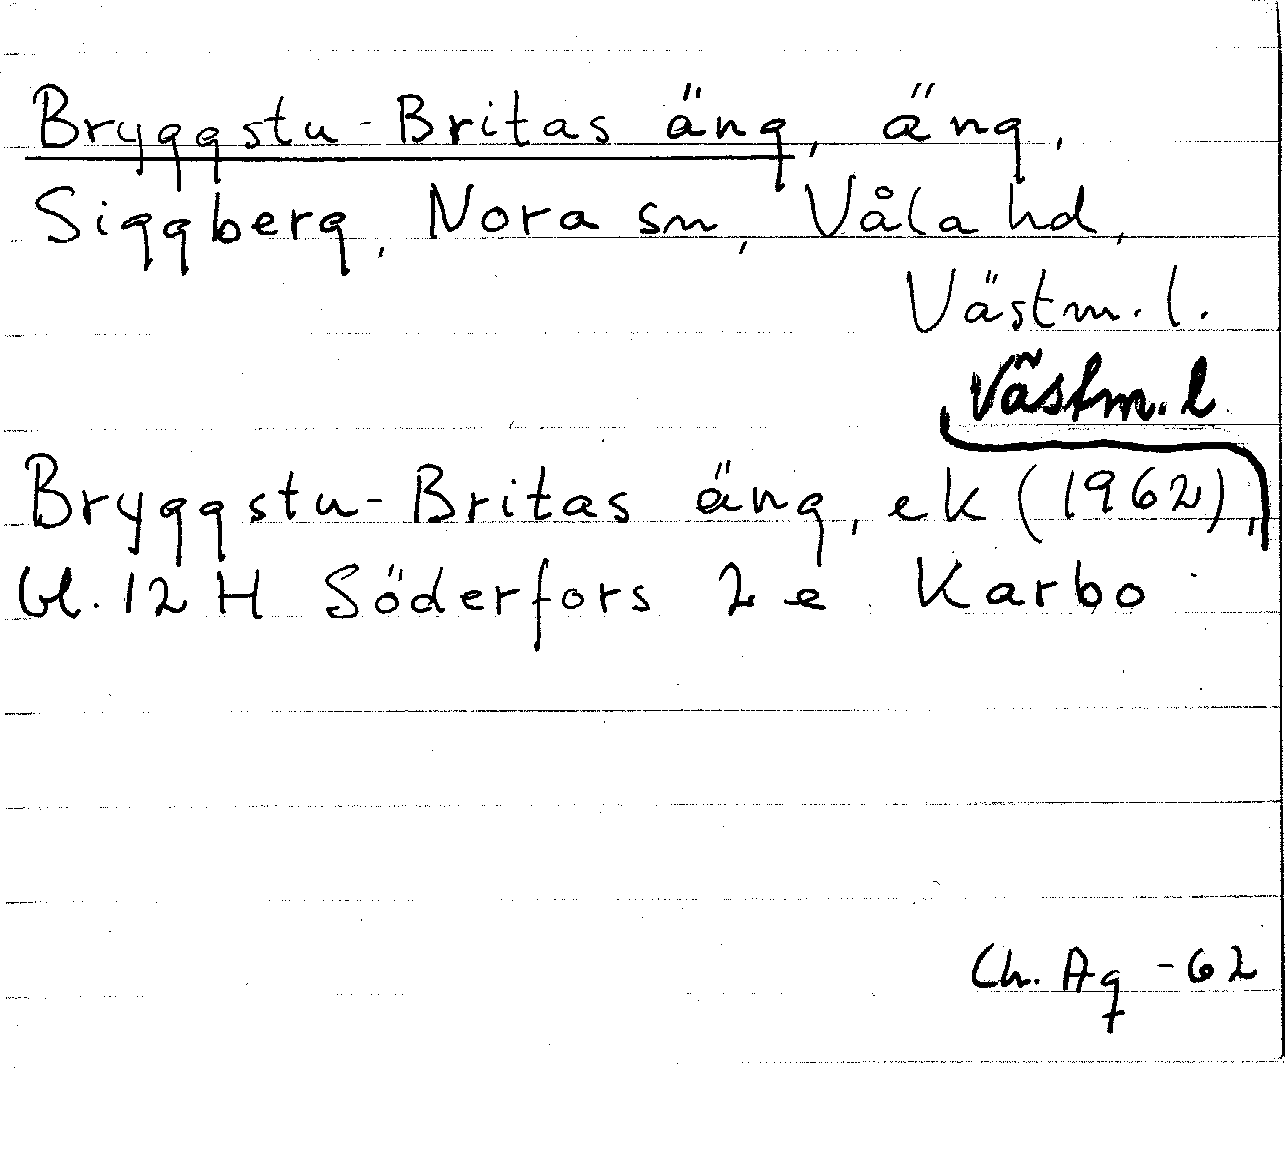 Bryggstu-Britas äng, äng,
Siggberg, Nora sn, Våla hd,
Västm. l.
Västm. l
Bryggstu-Britas äng, ek (1962),
bl. 12 H Söderfors 2 e Karbo
Ch. Ag -62